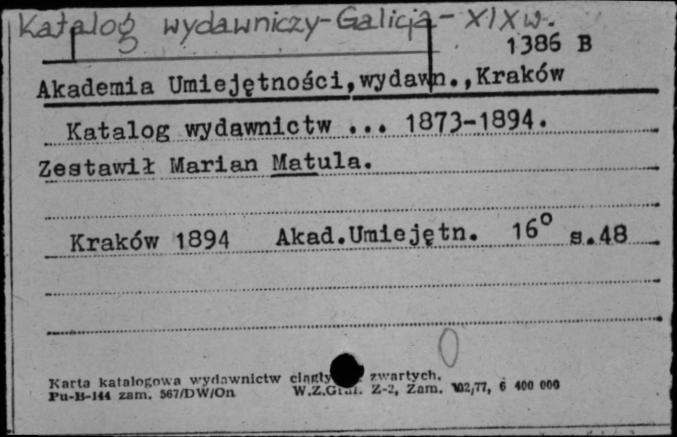 Katalog wydawniczy - Galicja - XIX w.
1386 B
Akademia Umiejętności, wydawn., Kraków
Katalog wydawnictw ... 1873-1894.
Zestawił Marian Matula.
Kraków 1894 Akad.Umiejętn. 16° s.48
Karta katalogowa wydawnictw zwartych.
Pu-B-144 zam. 567/DW/On W.Z.Graf. Z-2, Zam. 102/77, 6 400 000